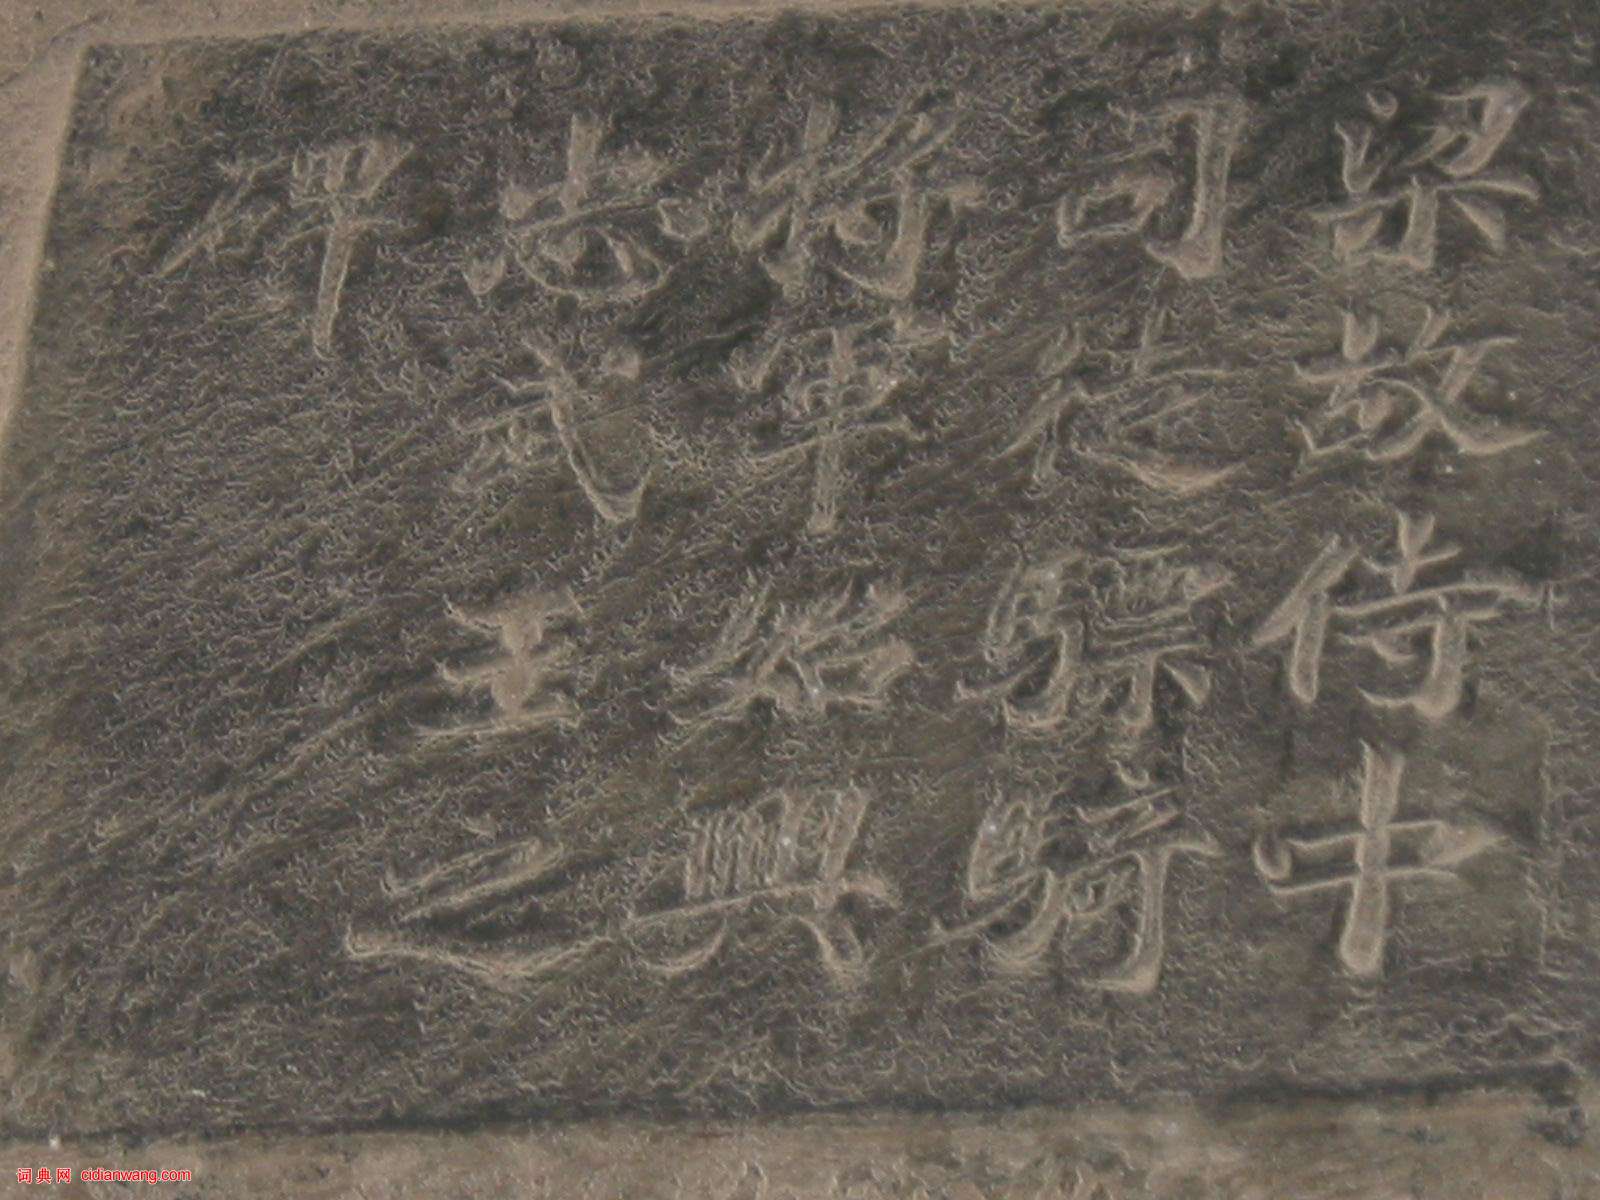 梁故侍中
司徒驃騎
將軍始興
忠武王之
碑
词典网 cidianwang.com